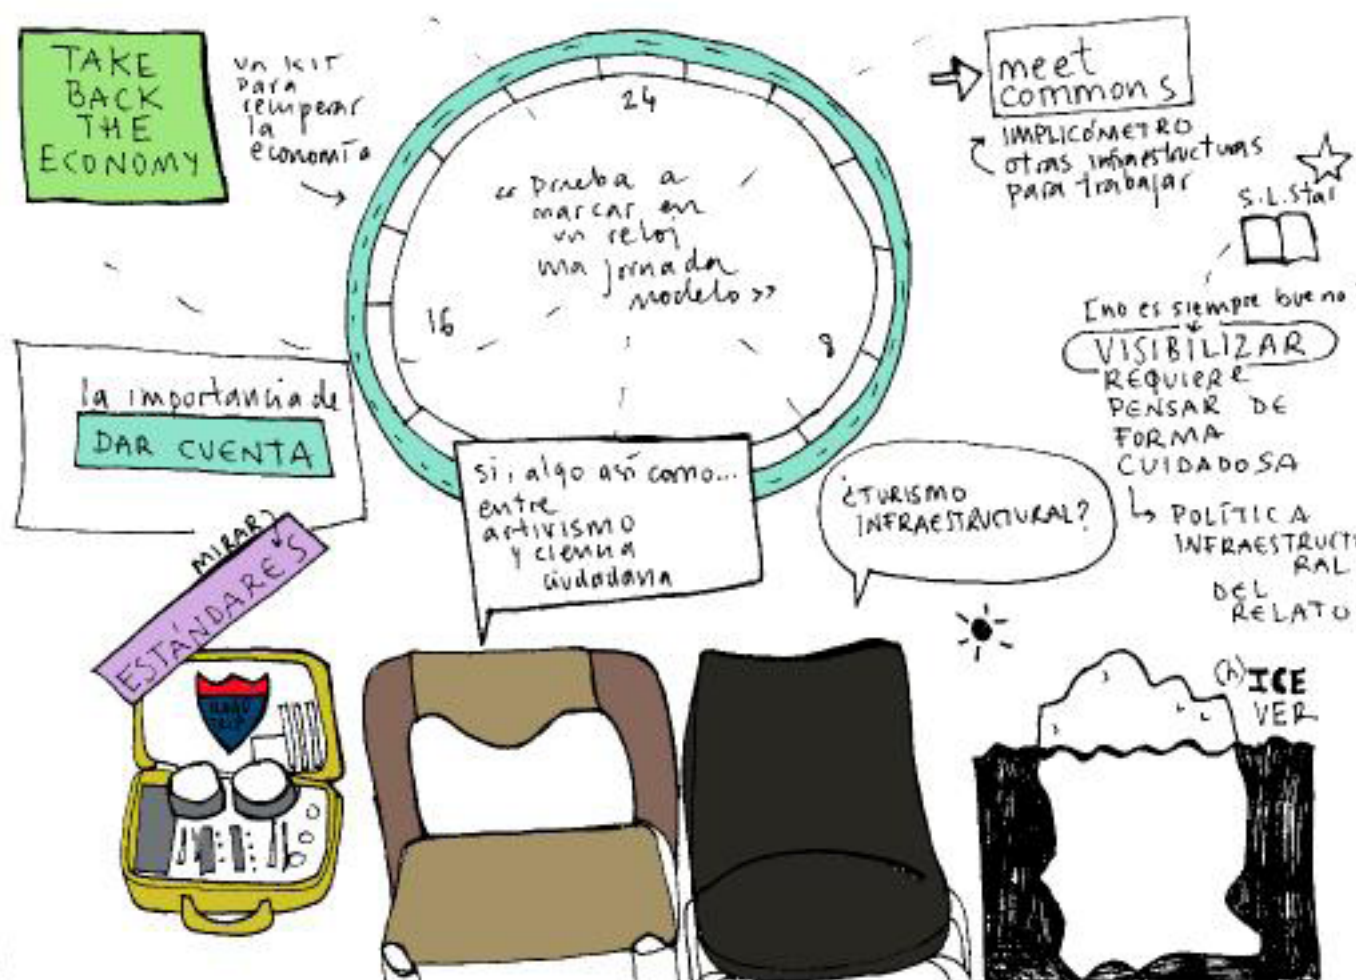 TAKE
BACK
THE
ECONOMY
un KIT
para
recuperar
la
economía
24
16
8
<< Prueba a
marcar en
un reloj
una jornada
modelo >>
meet
commons
IMPLICÓMETRO
otras infraestructuras
para trabajar
S.L.Star
[no es siempre bueno
VISIBILIZAR
REQUIERE
PENSAR DE
FORMA
CUIDADOSA
POLÍTICA
INFRAESTRUCTU
RAL
DEL
RELATO
la importancia de
DAR CUENTA
MIRAR
ESTÁNDARES
si, algo así como...
entre
artivismo
y ciencia
ciudadana
¿TURISMO
INFRAESTRUCTURAL?
ROAD
TRIP
(h) ICE
VER